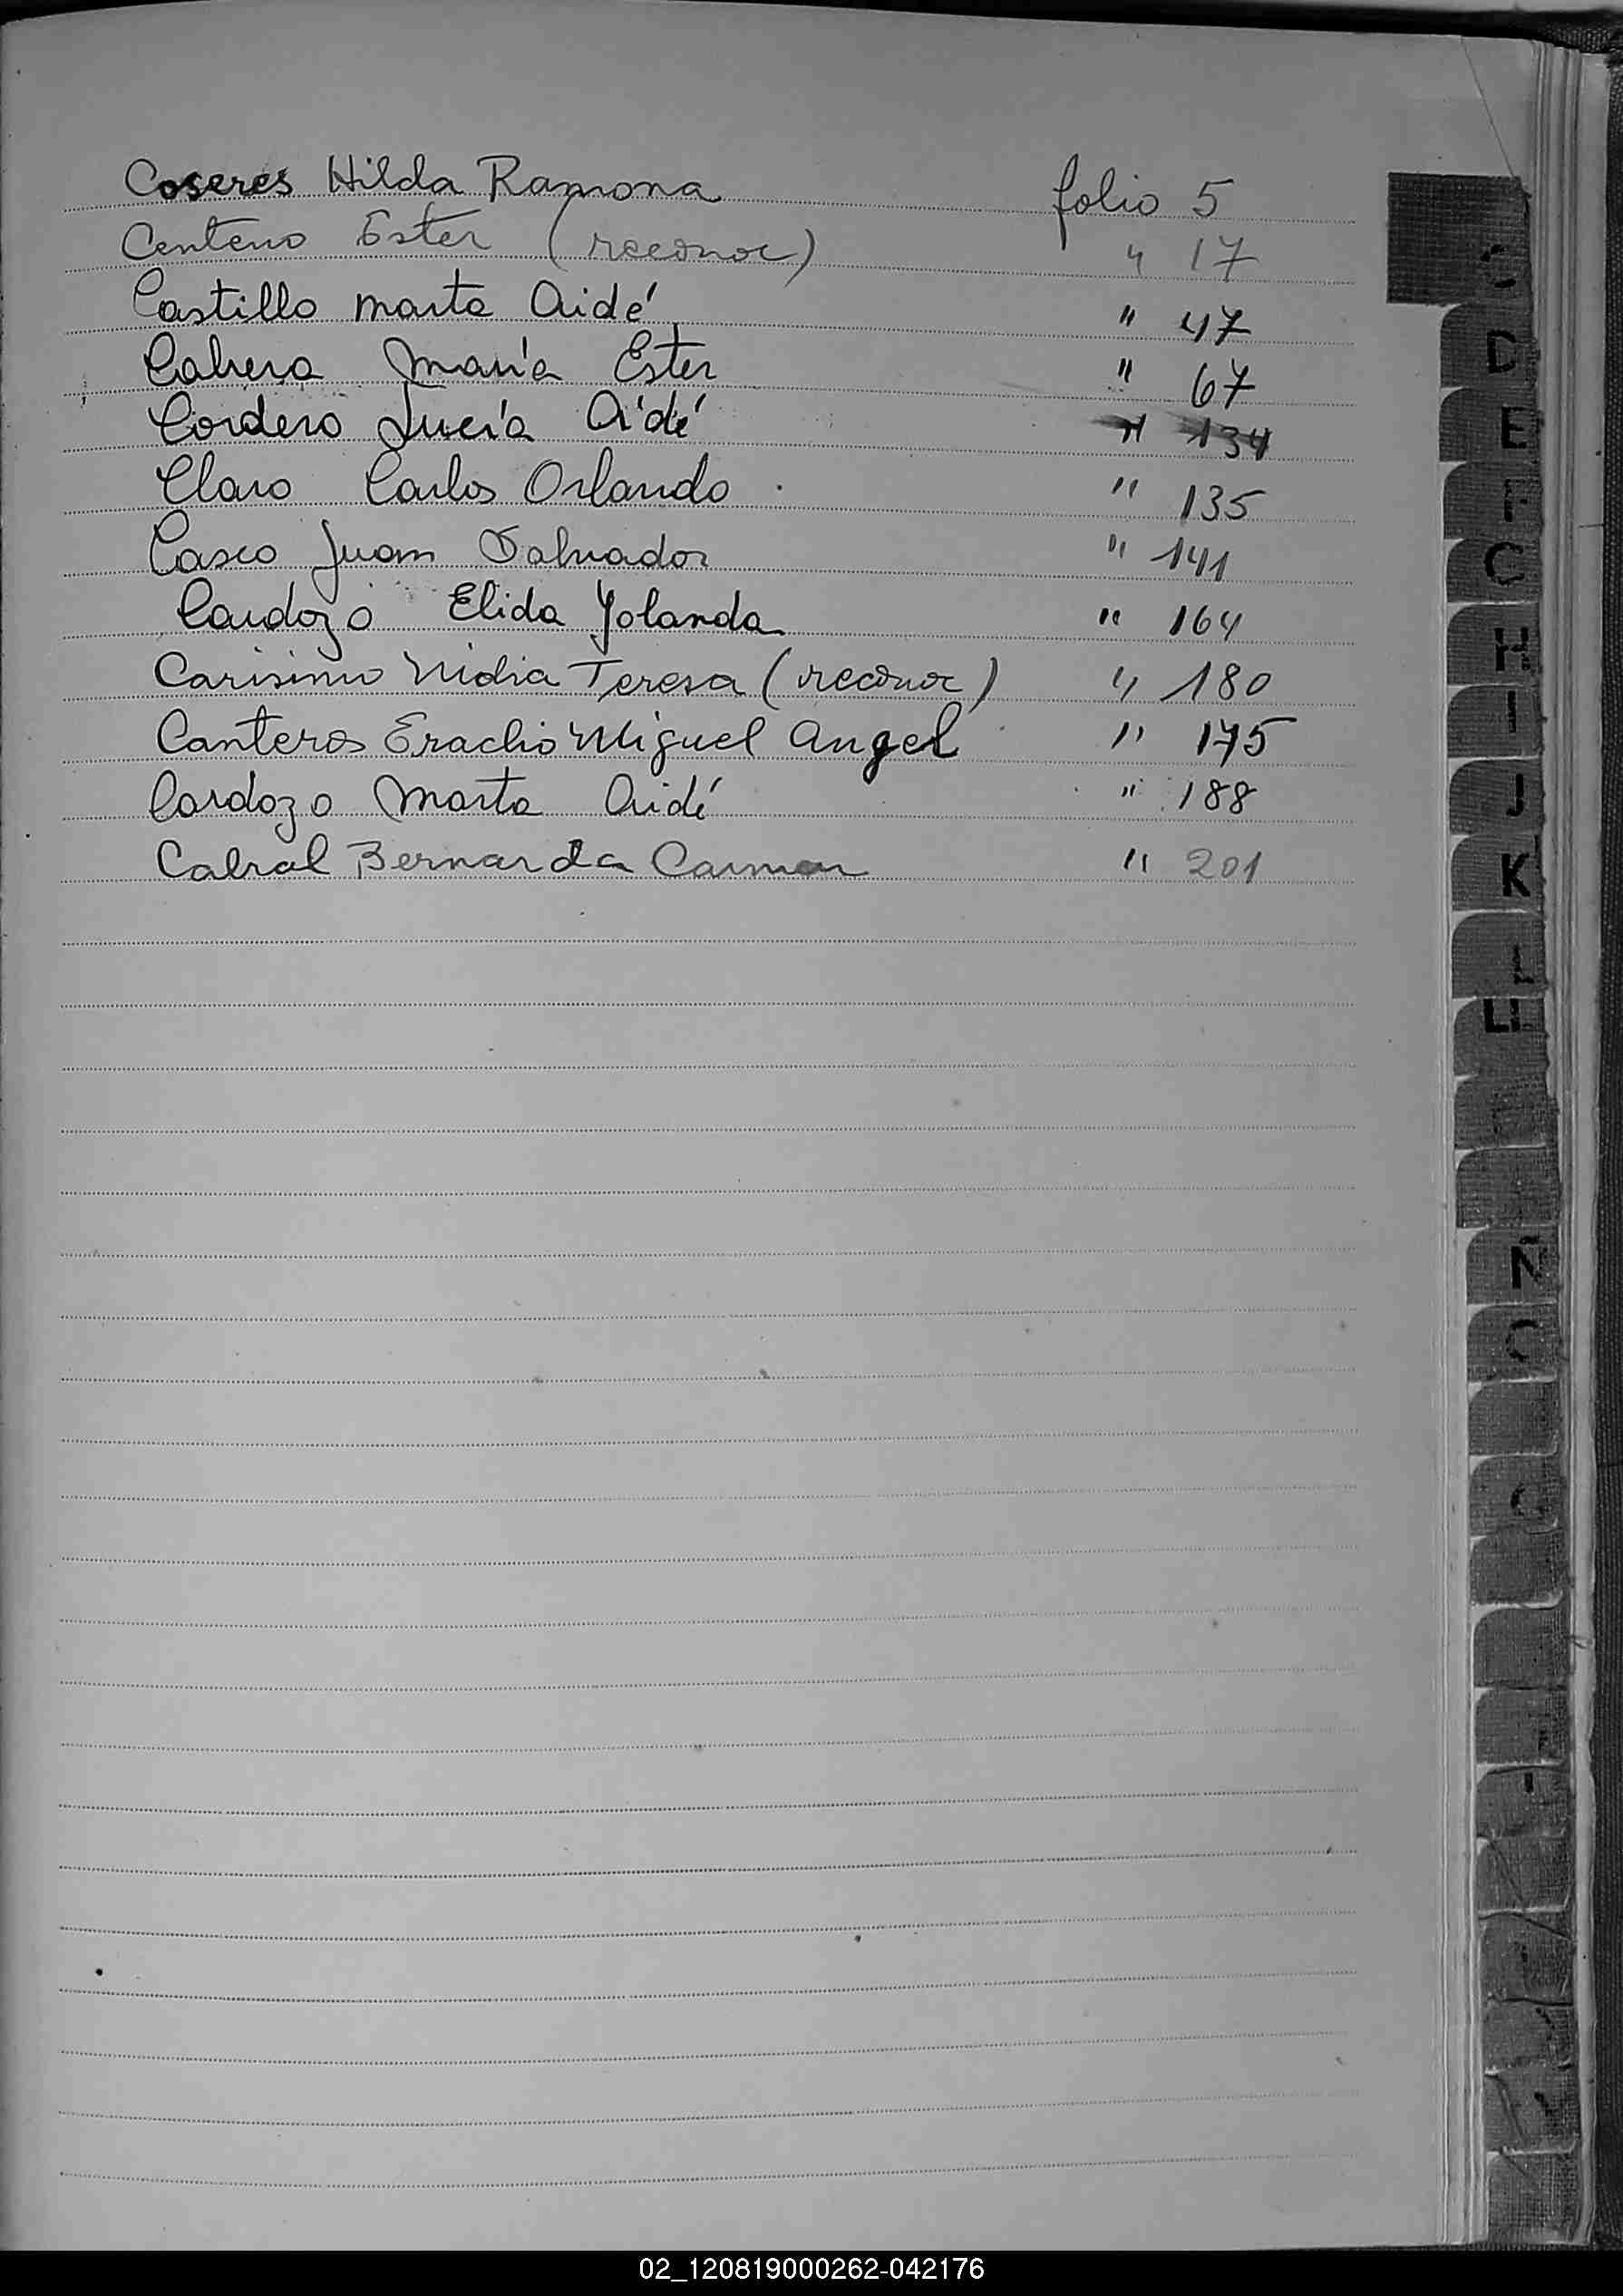 Coseres Hilda Ramona folio 5
Centeno Ester (reconoc) " 17
Castillo Marta Aidé " 47
Cabrera María Ester " 67
Cordero Lucía Aídé " 134
Claro Carlos Orlando " 135
Casco Juan Salvador " 141
Cardozo Elida Yolanda " 164
Carisimo Nidia Teresa (reconoc) " 180
Canteros Eraclio Miguel Angel " 175
Cardozo Marta Aidé " 188
Cabral Bernarda Carmen " 201
D
E
G
H
I
J
K
LL
Ñ
O
02_120819000262-042176